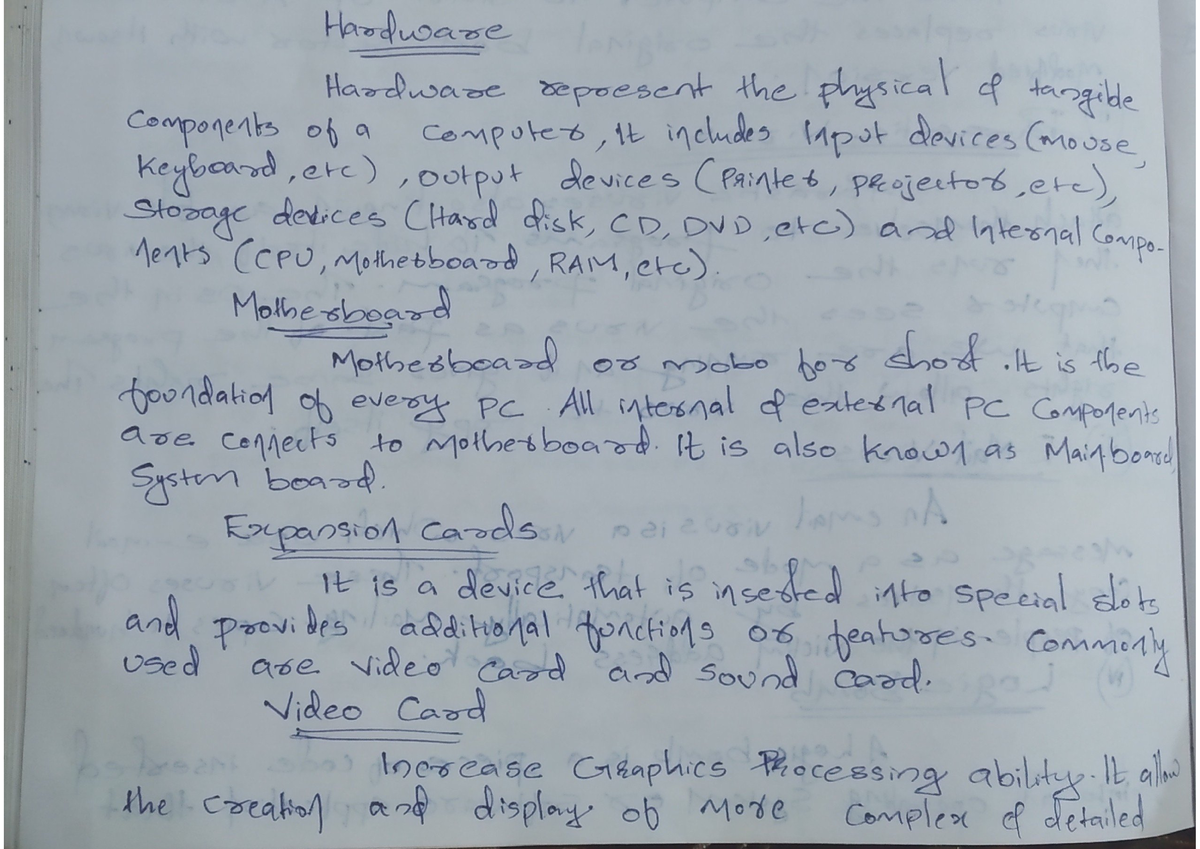 Hardware
Hardware represent the physical & tangible
Components of a computer, It includes Input devices (mouse,
Keyboard, etc), output devices (Printer, projector, etc),
Storage devices (Hard disk, CD, DVD, etc) and Internal Compo-
nents (CPU, Motherboard, RAM, etc).
Motherboard
Motherboard or mobo for short. It is the
foundation of every PC. All internal & external PC Components
are connects to Motherboard. It is also known as Mainboard,
System board.
Expansion Cards
It is a device that is inserted into special slots
and provides additional functions or features. Commonly
used are video card and sound card.
Video Card
Increase Graphics Processing ability. It allow
the creation and display of more complex & detailed